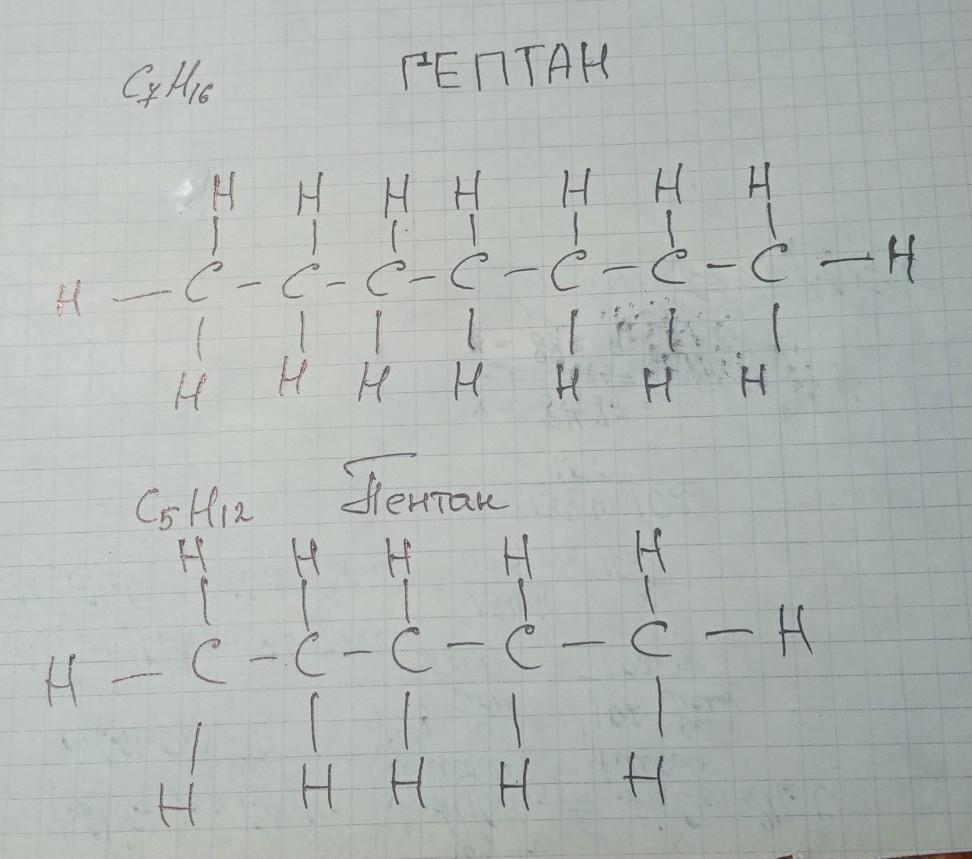 C₇H₁₆ ГЕПТАН
H H H H H H H
| | | | | | |
H — C - C - C - C - C - C - C — H
| | | | | | |
H H H H H H H
C₅H₁₂ Пентан
H H H H H
| | | | |
H — C - C - C - C - C — H
| | | | |
H H H H H